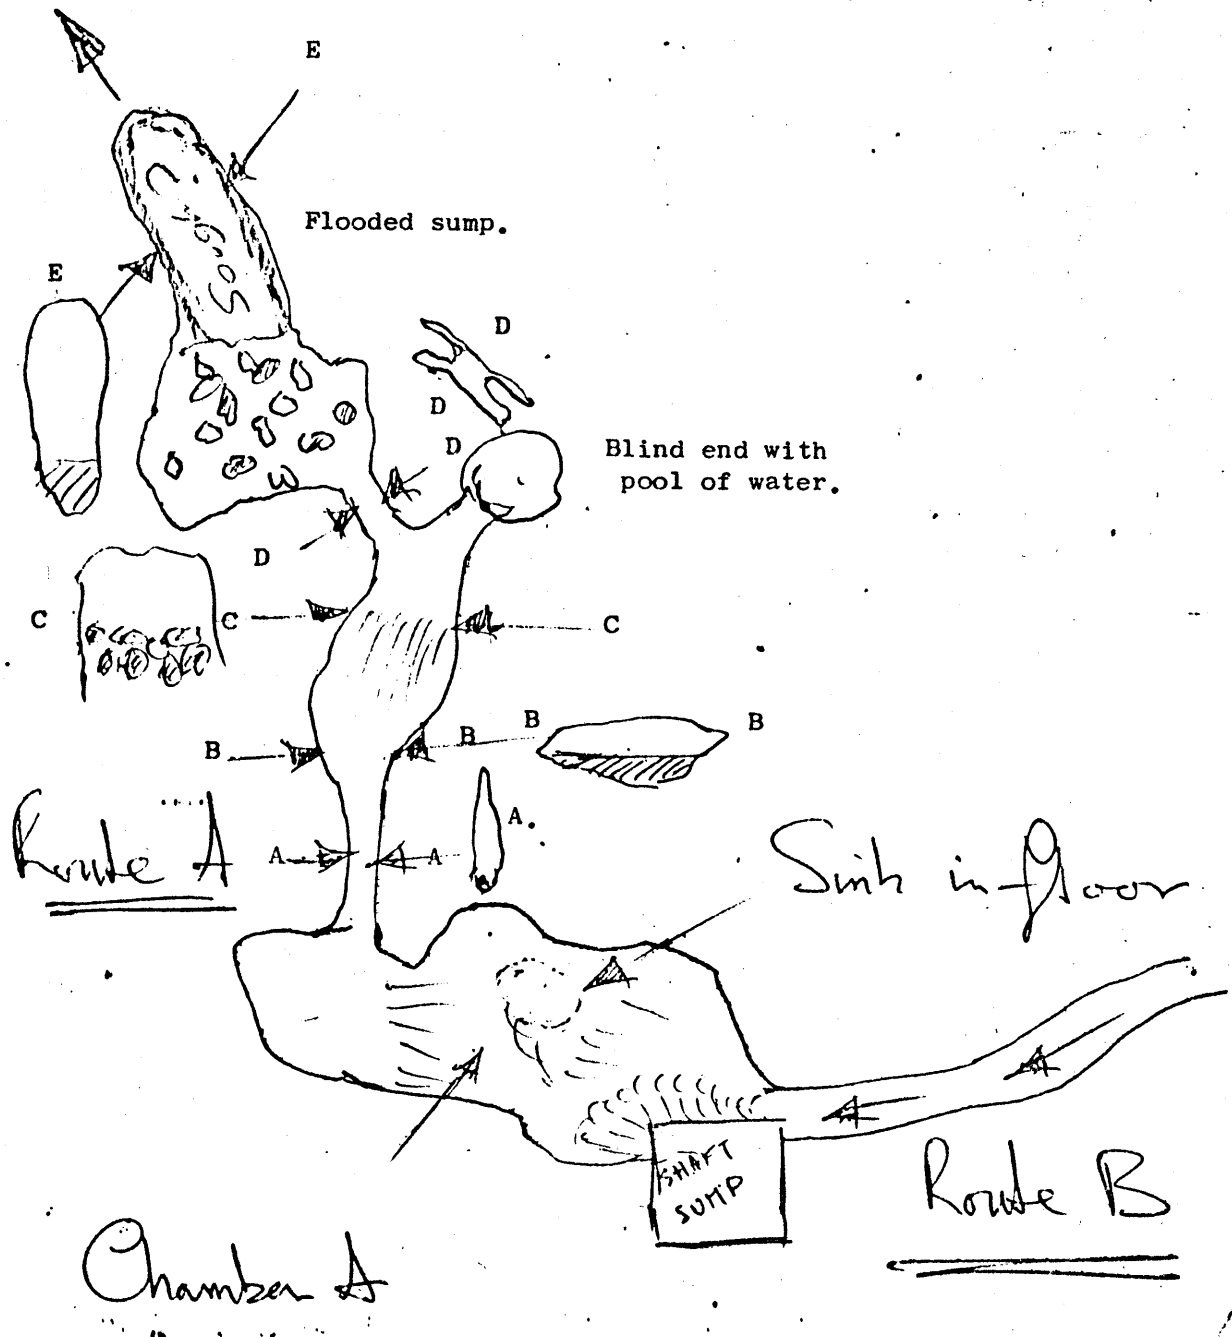 E
Flooded sump.
E
D
D
D
Blind end with
pool of water.
D
C
C
C
B
B
B
B
A.
Route A
A
A
Sink in floor
SHAFT
SUMP
Route B
Chamber A